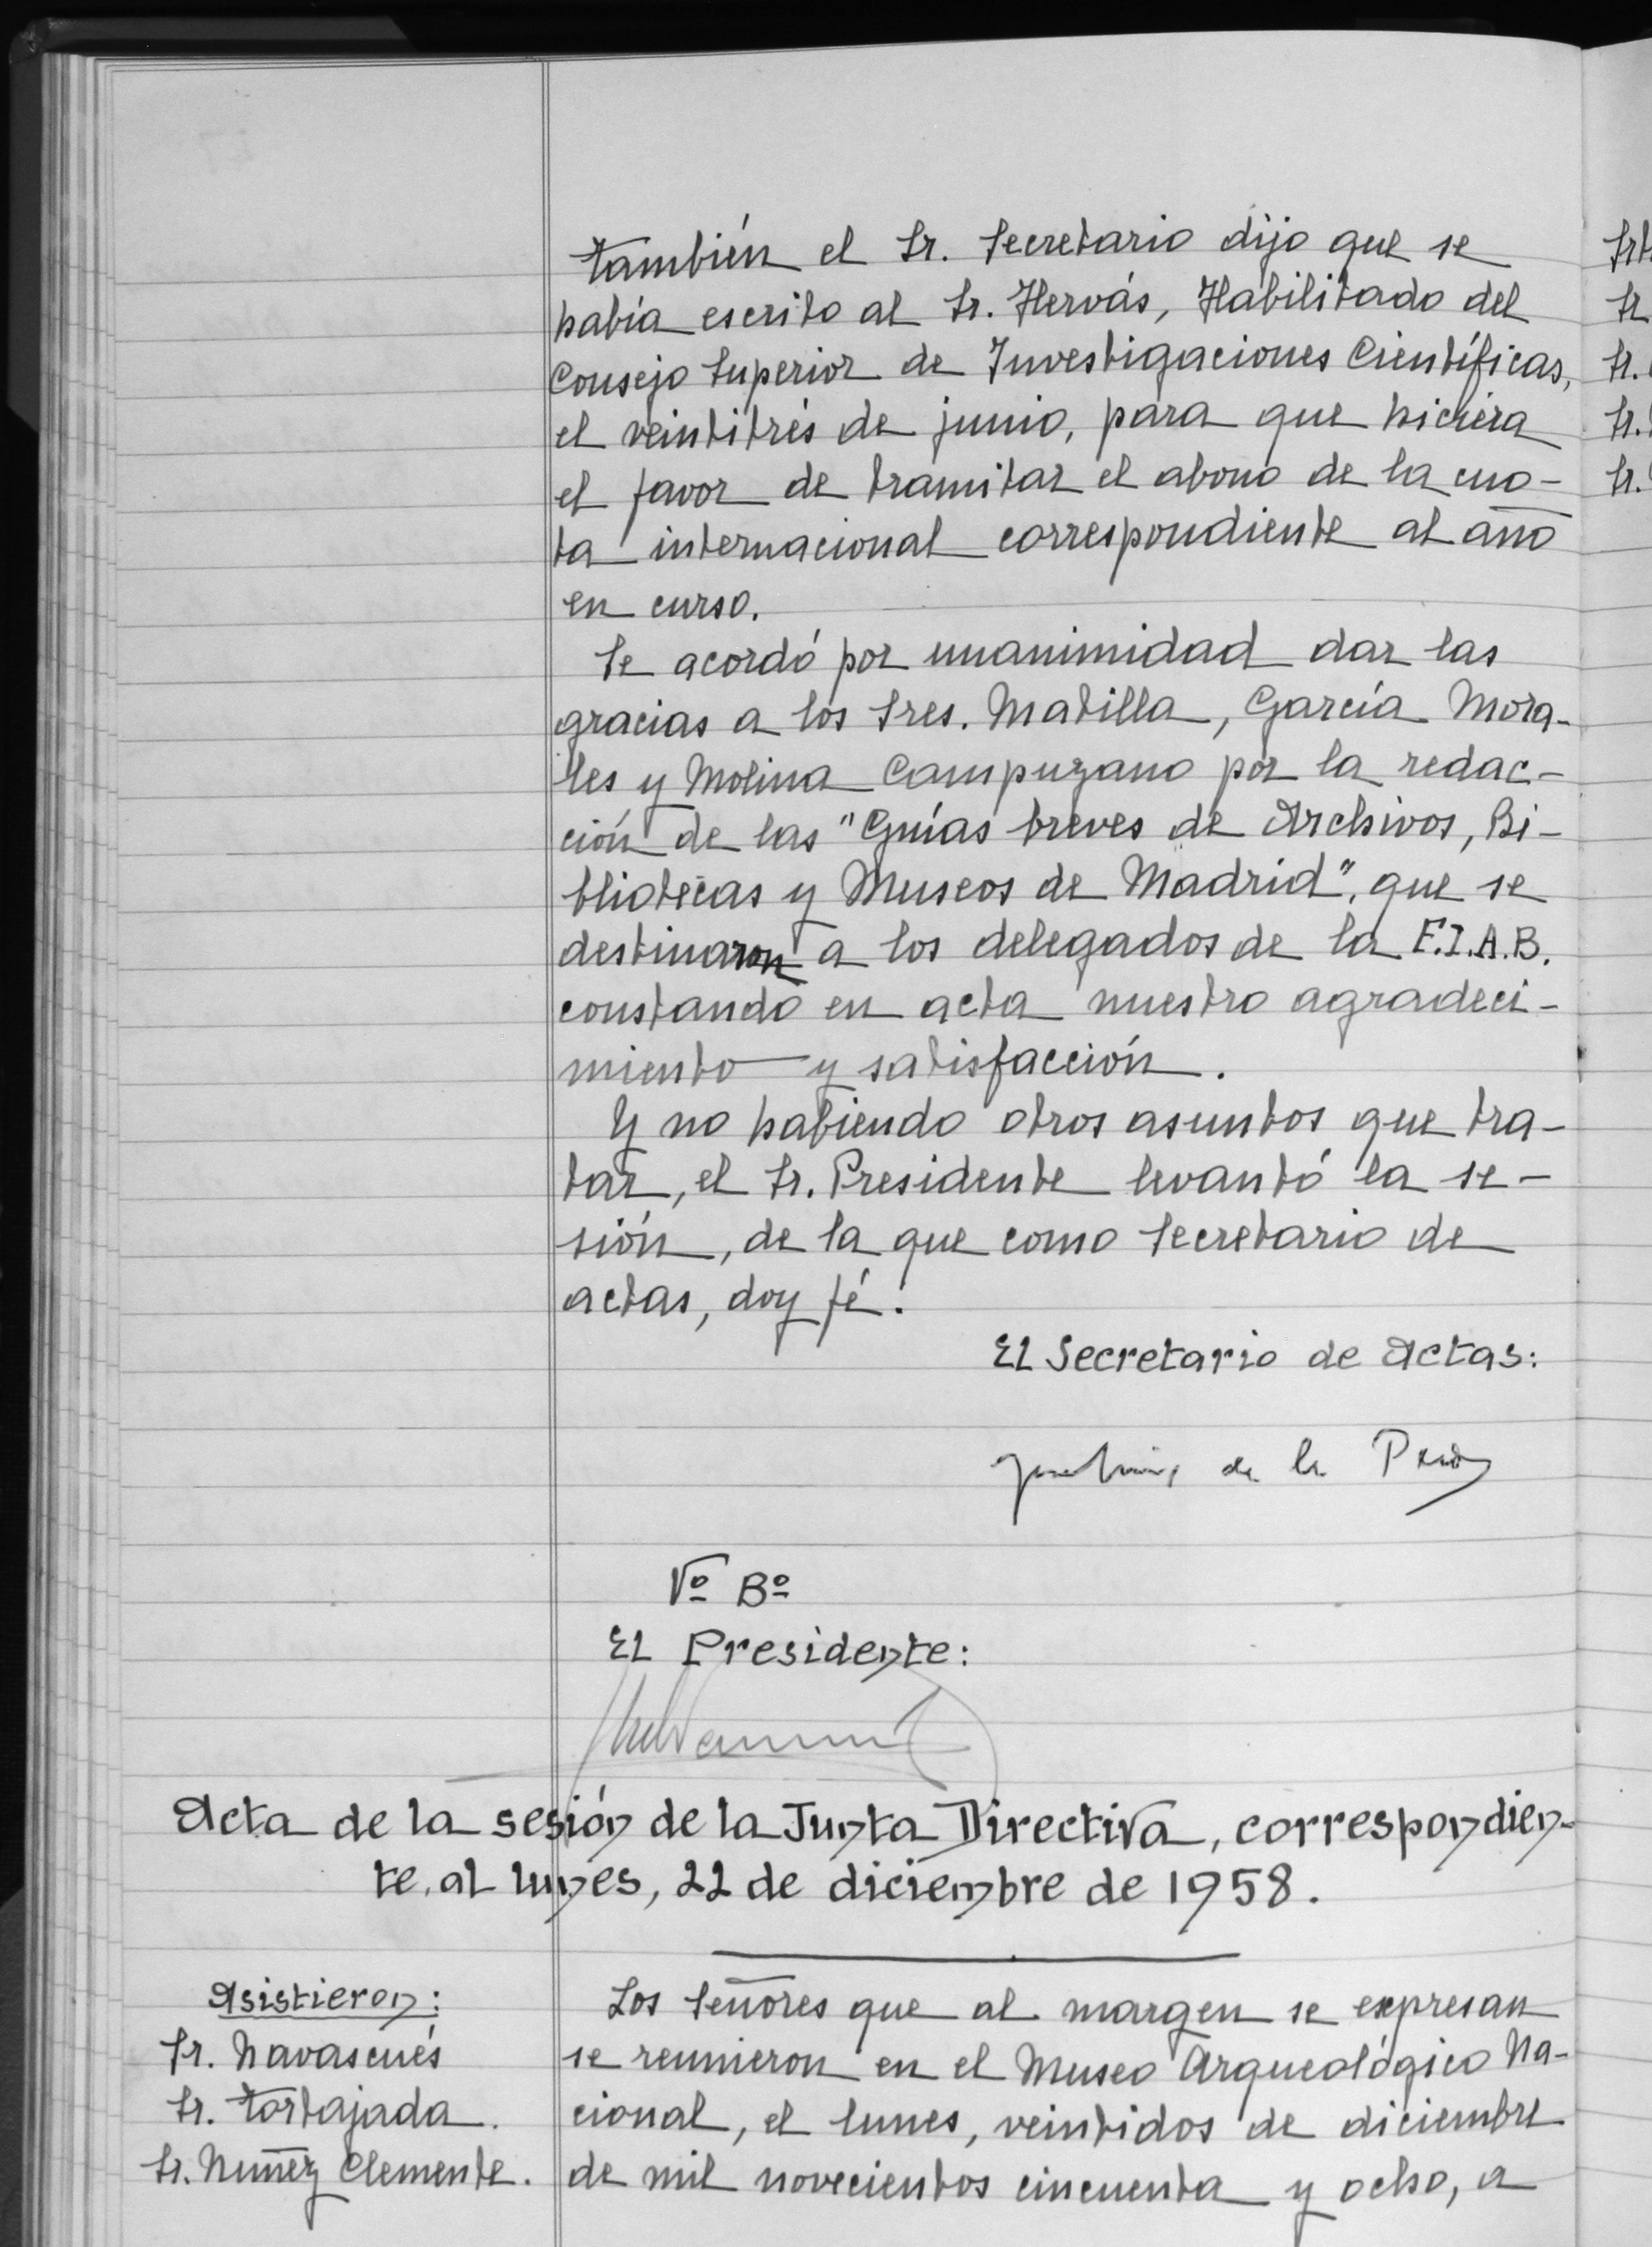 También el Sr. Secretario dijo que se
había escrito al Sr. Hervás, Habilitado del
Consejo Superior de Investigaciones Científicas,
el veintitrés de junio, para que hiciera
el favor de tramitar el abono de la cuo-
ta internacional correspondiente al año
en curso.
Se acordó por unanimidad dar las
gracias a los Sres. Matilla, García Mora-
les y Molina Campuzano por la redac-
ción de las "Guías breves de Archivos, Bi-
bliotecas y Museos de Madrid", que se
destinaron a los delegados de la F.I.A.B.
constando en acta nuestro agradeci-
miento y satisfacción.
Y no habiendo otros asuntos que tra-
tar, el Sr. Presidente levantó la se-
sión, de la que como Secretario de
actas, doy fé.
El Secretario de Actas:
de la
Vº Bº
El Presidente:
Acta de la sesión de la Junta Directiva, correspondien-
te al lunes, 22 de diciembre de 1958.
Asistieron:
Sr. Navascués
Sr. Tortajada.
Sr. Nuñez Clemente.
Los Señores que al margen se expresan
se reunieron en el Museo Arqueológico Na-
cional, el lunes, veintidos de diciembre
de mil novecientos cincuenta y ocho, a
Sr
Sr.
Sr.
Sr.